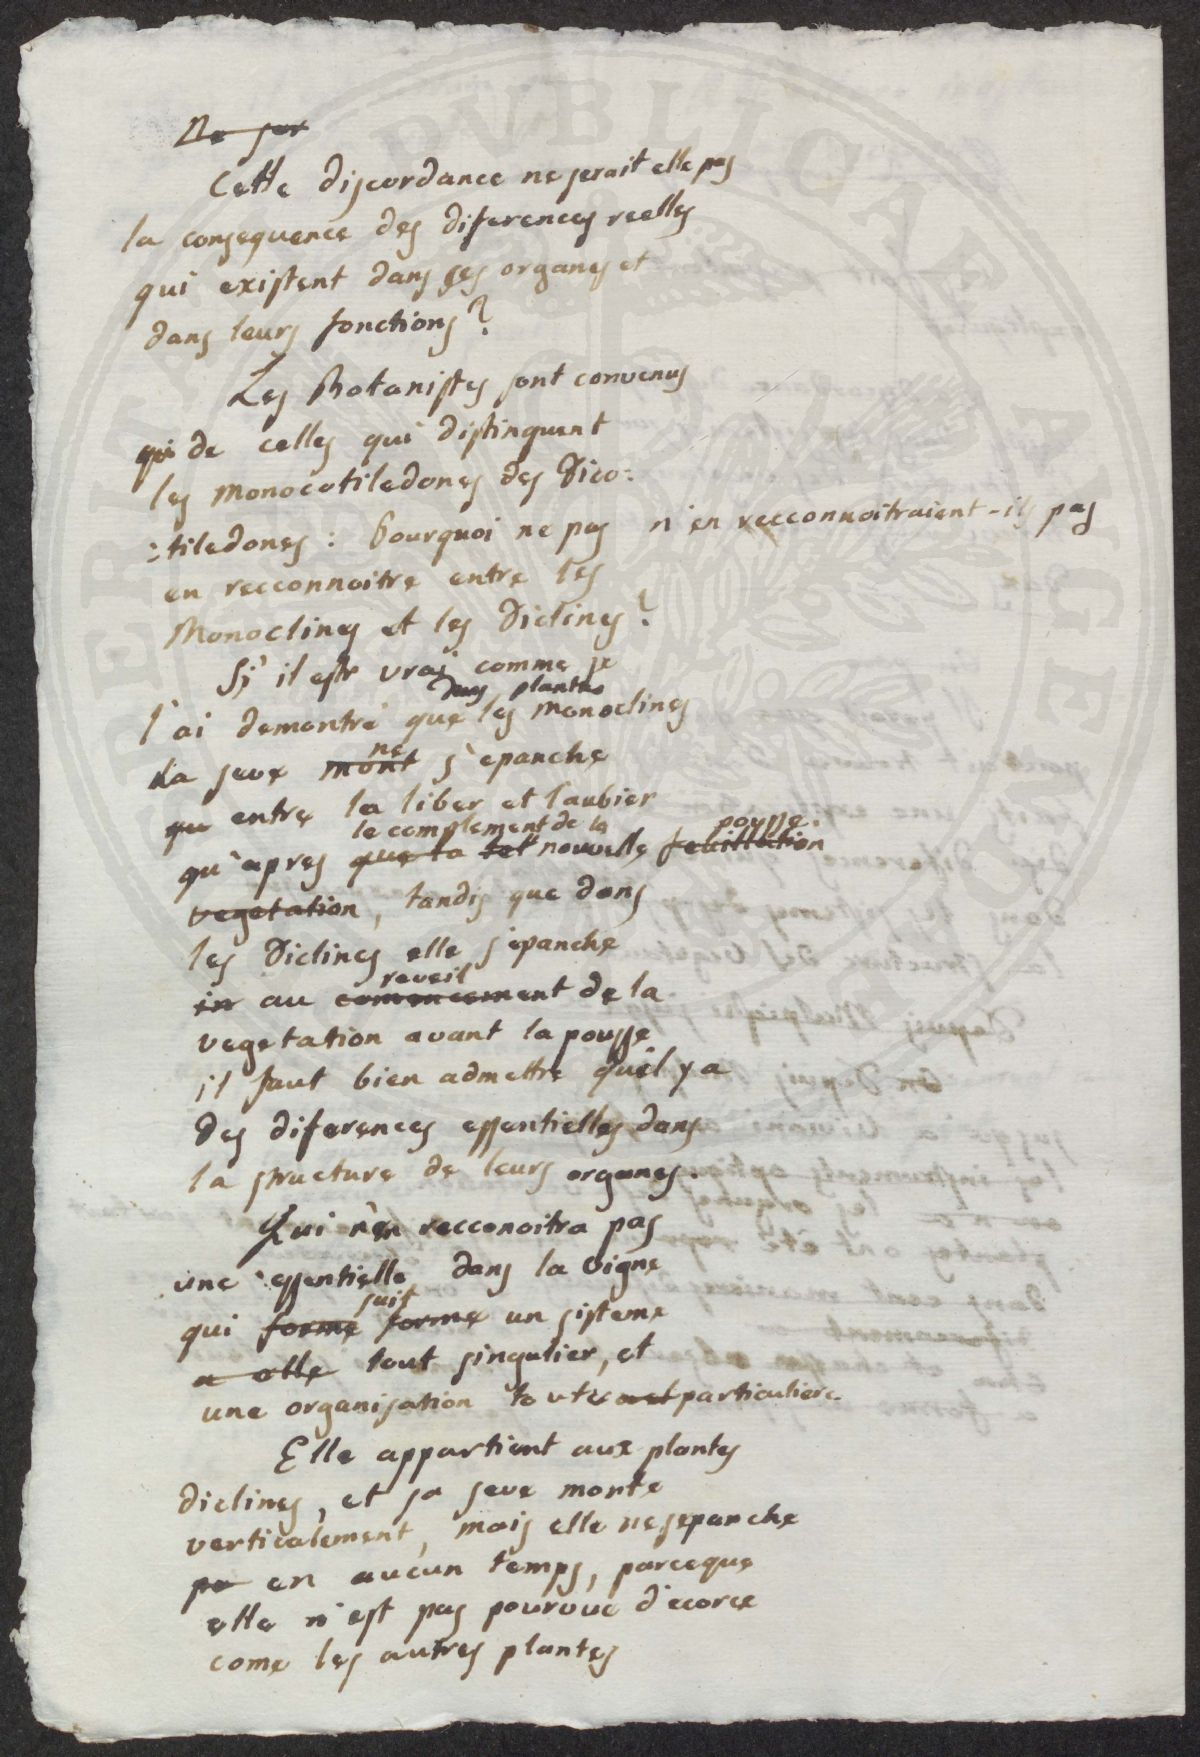 De ser
Cette discordance ne serait elle pas
la consequence des diferences reelles
qui existent dans ses organes et
dans leurs fonctions?
Les Botanistes sont convenus
qu de celles qui distinguent
les monocotiledones des Dico:
:tiledones: Pourquoi ne pas n'en recconnoitraient-ils pas
en recconnoitre entre les
Monoclines et les Diclines?
S'il est vrai comme je
dans plantes
l'ai demontré que les monoclines
la seve mont s'epanche
ne
qu entre la liber et l'aubier
le complement de la pousse.
qu'apres que la nouvelle feuillaison
vegetation, tandis que dans
les Diclines elle s'epanche
reveil
in au comencement de la
vegetation avant la pousse
il faut bien admettre qu'il y a
des diferences essentielles dans
la structure de leurs organes.
Qui n'en recconoitra pas
une essentielle dans la vigne
suit
qui forme forme un sisteme
a elle tout singulier, et
une organisation toute particuliere.
Elle appartient aux plantes
diclines, et sa seve monte
verticalement, mais elle ne sepanche
pa en aucun temps, parceque
elle n'est pas pourvue d'ecorce
come les autres plantes